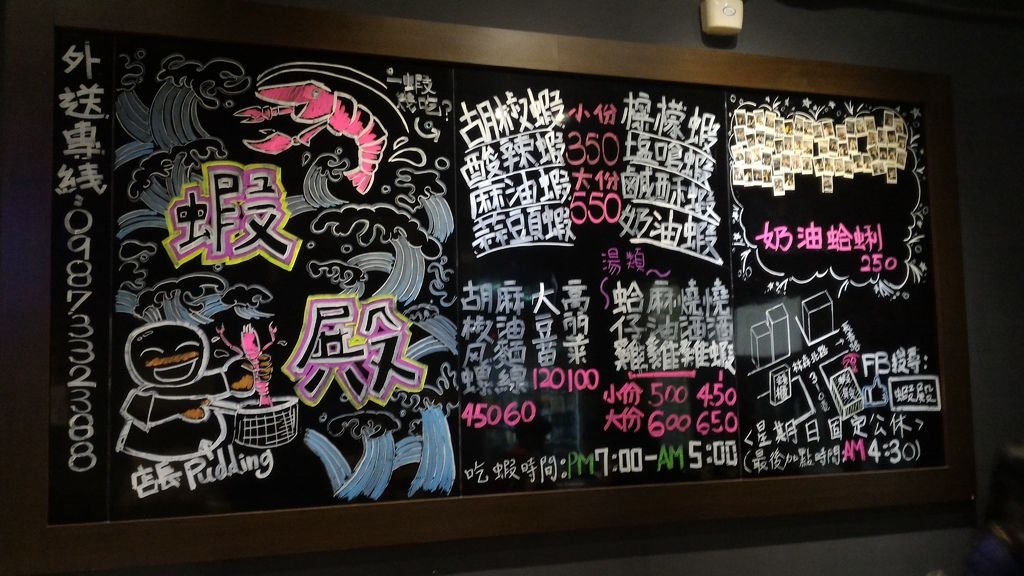 外送專線:0987332388
一蝦
幾吃?
蝦
殿
店長Pudding
胡椒蝦
酸辣蝦
麻油蝦
蒜頭蝦
小份
350
大份
550
檸檬蝦
鹽焗蝦
鹹酥蝦
奶油蝦
湯類~
胡椒鳳螺 450
麻油麵線 60
大 120
高麗菜 100
蛤仔雞
麻油雞
燒酒雞
燒酒蝦
小份 500 450
大份 600 650
吃蝦時間:PM7:00-AM5:00
奶油蛤蜊
250
林森北路
FB搜尋:
蝦殿
<星期日固定公休>
(最後加點時間AM4:30)